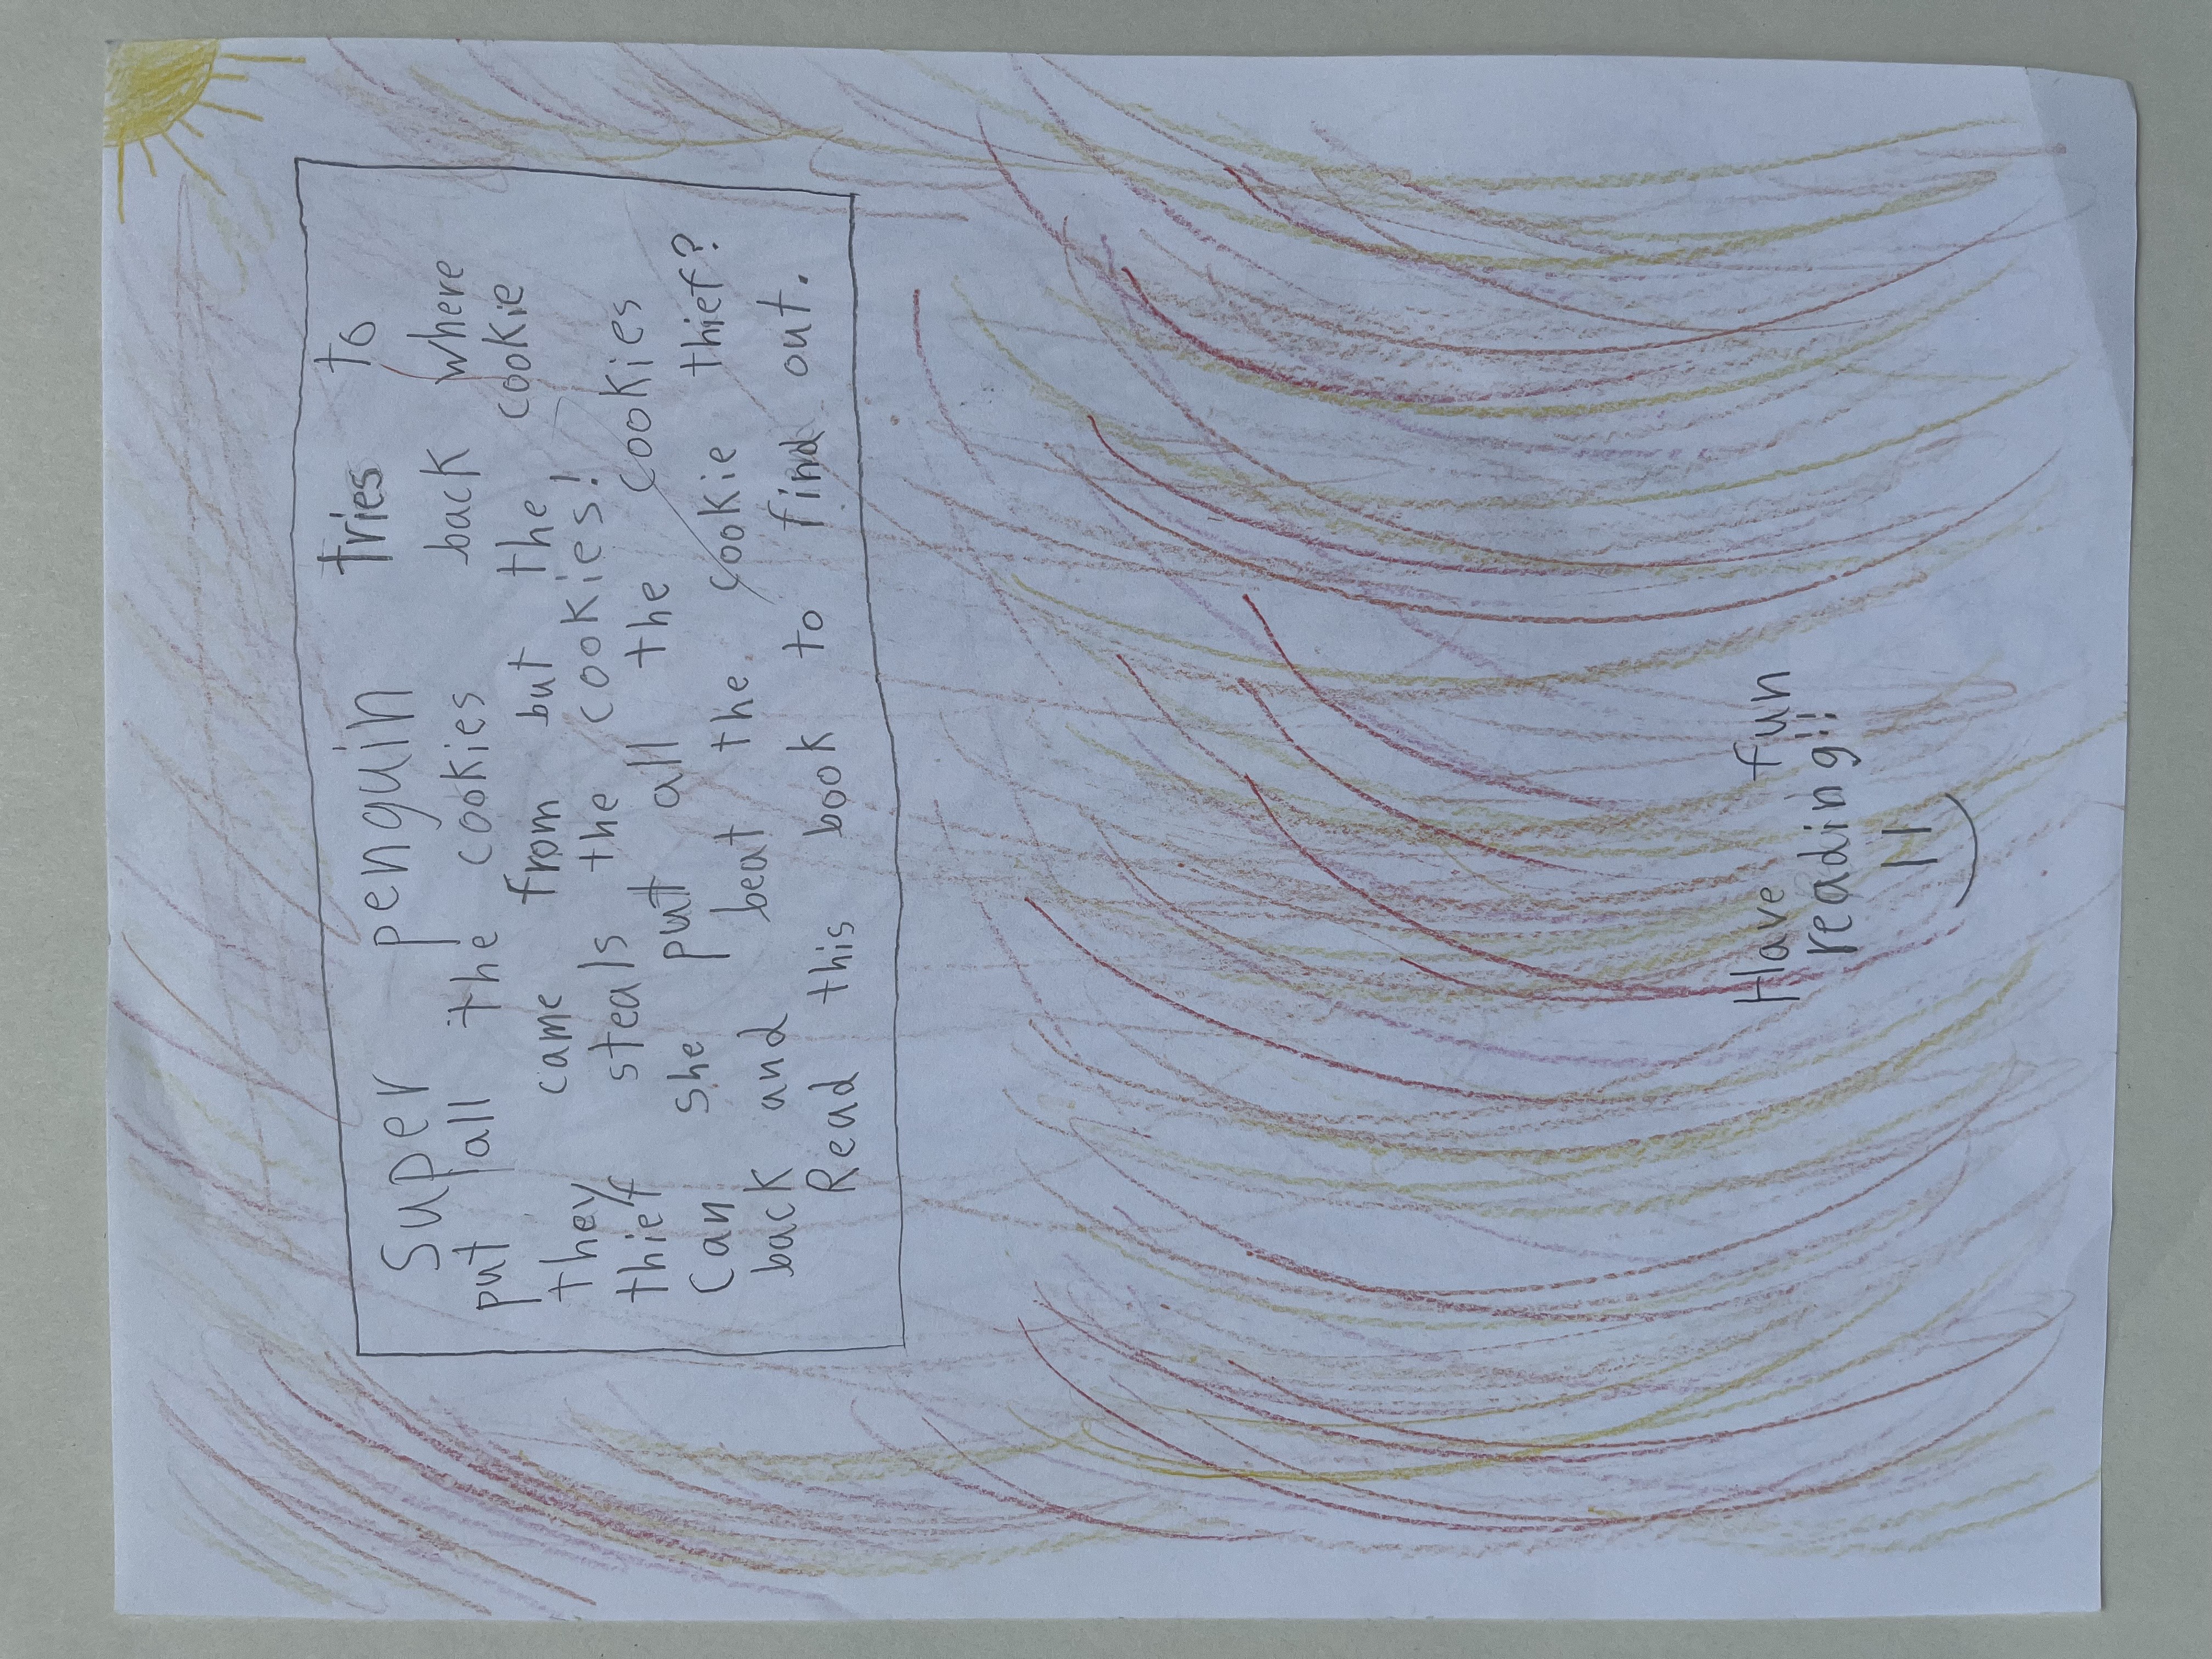 Super penguin tries to
put all the cookies back where
they came from but the cookie
thief steals the cookies!
Can she put all the cookies
back and beat the cookie thief?
Read this book to find out.
Have fun
reading!!